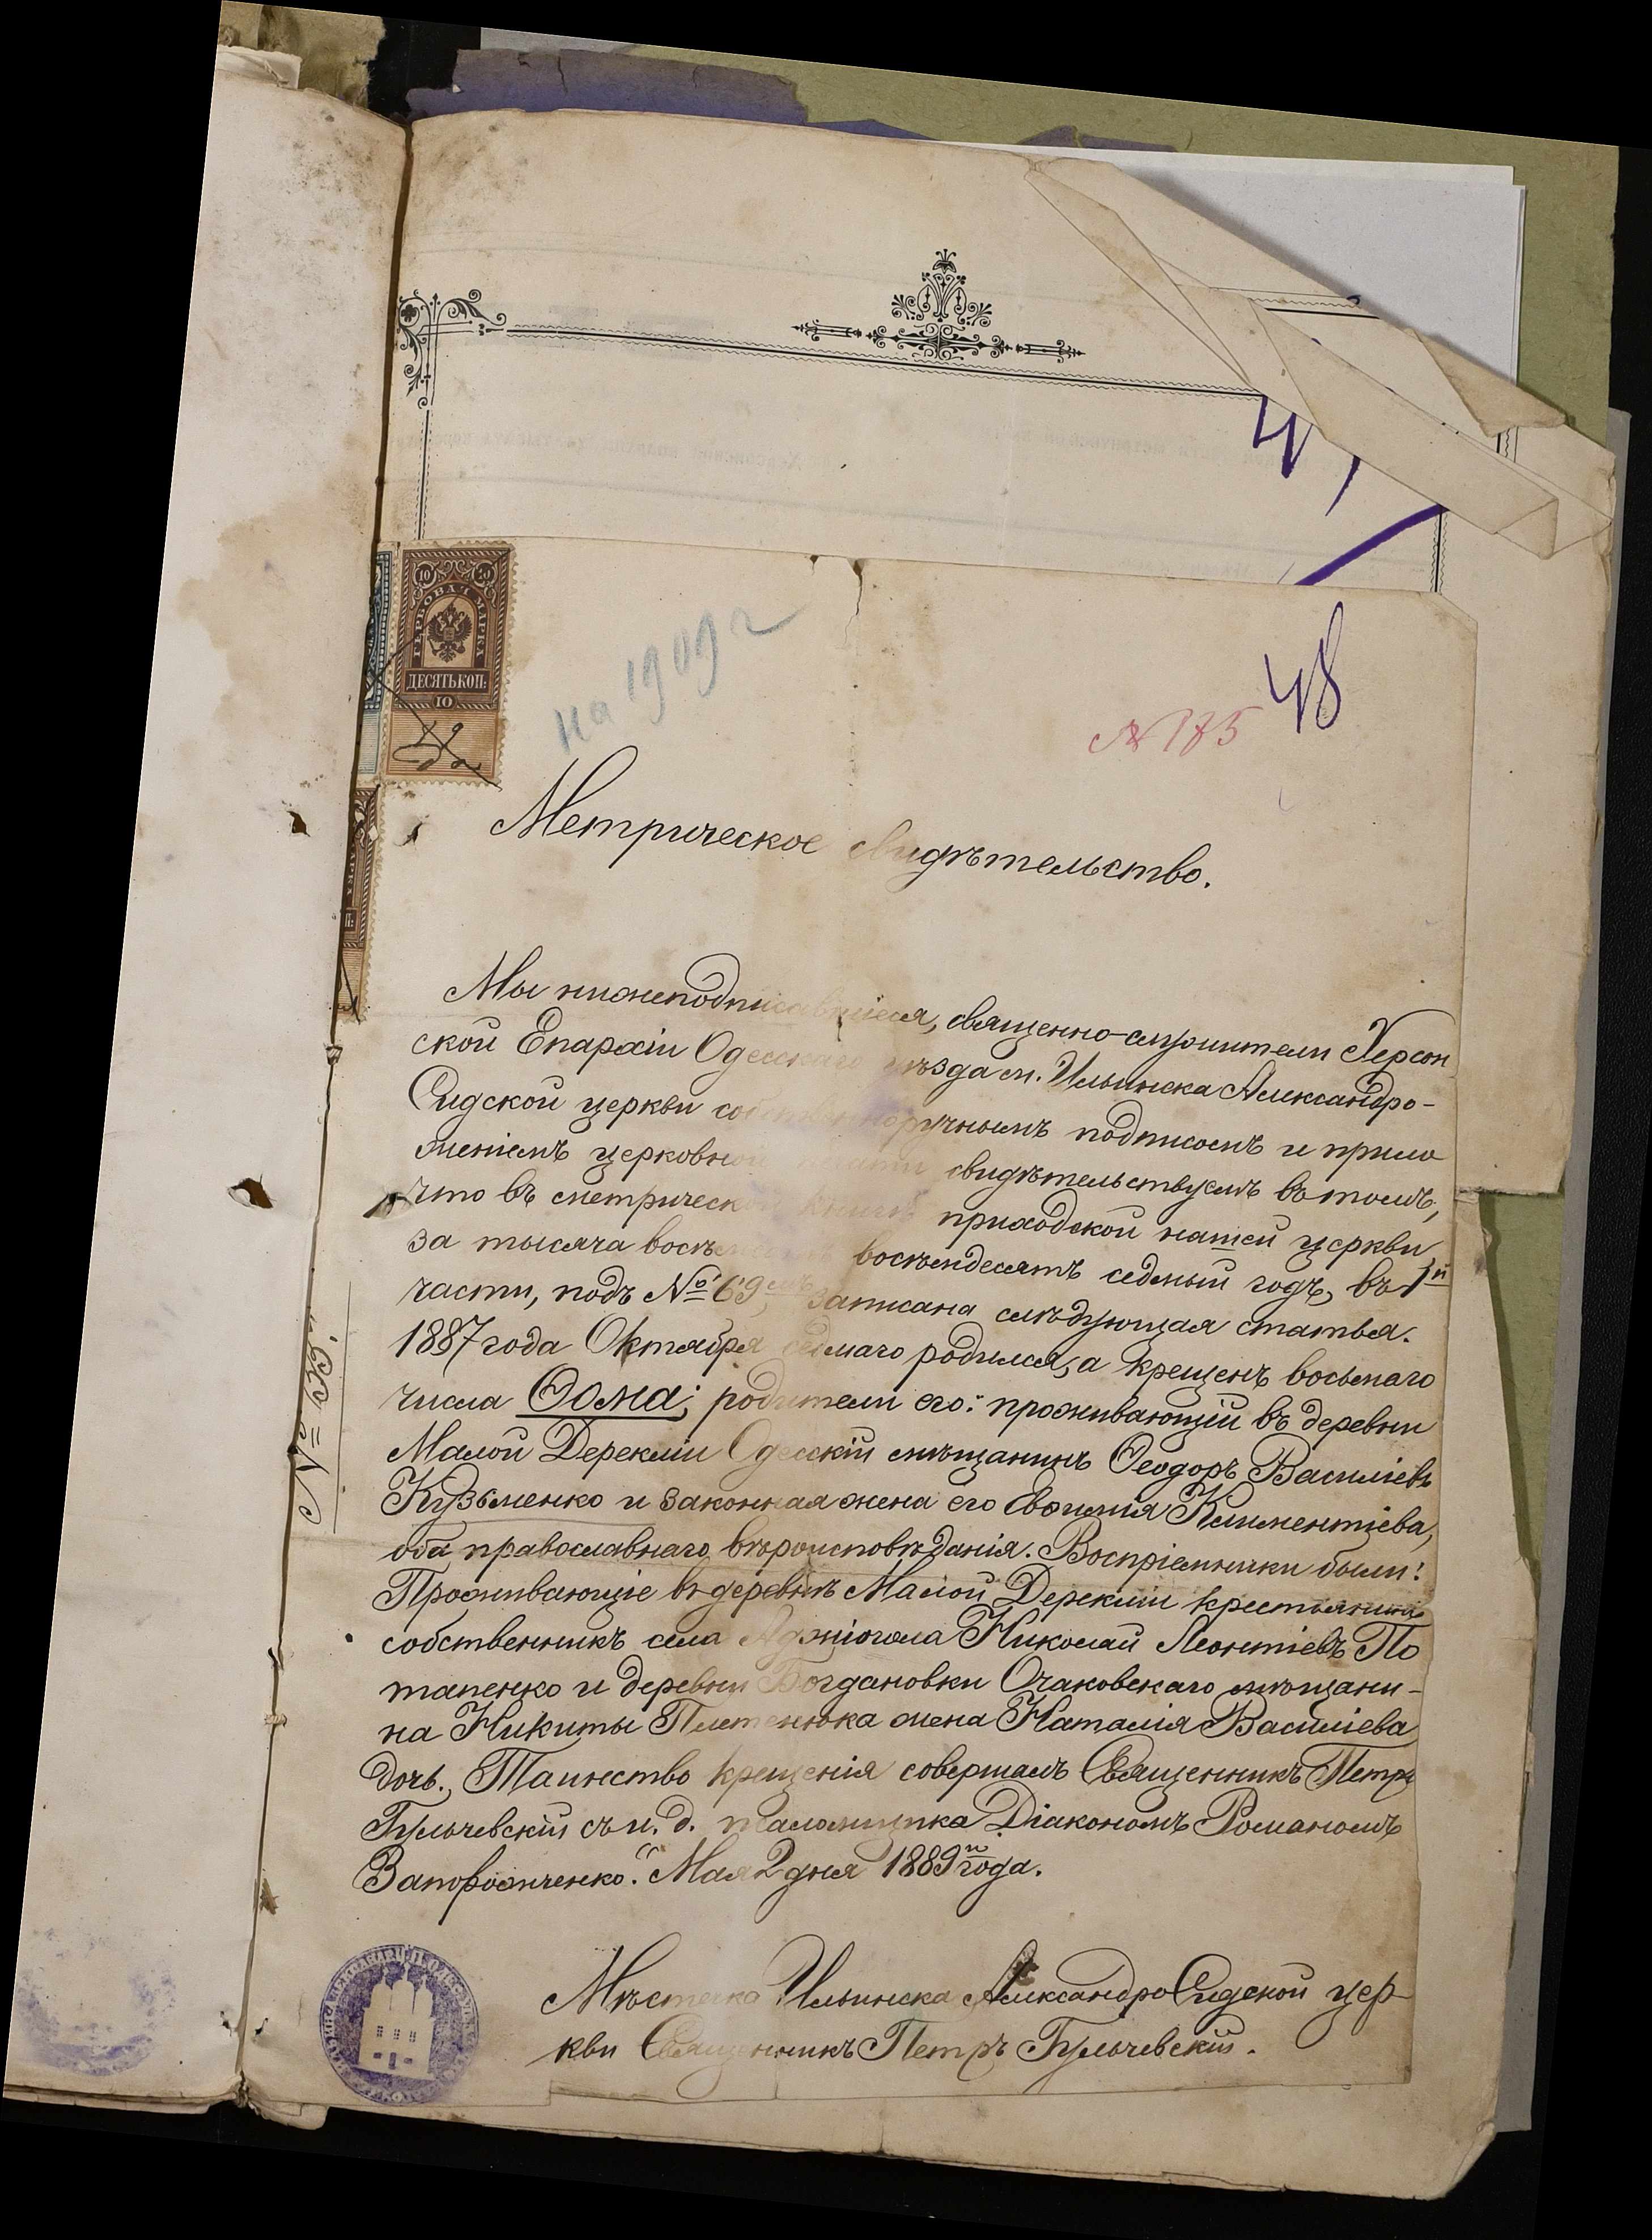 10 10
ГЕРБОВАЯ МАРКА
ДЕСЯТЬ КОП:
10
на 1909 г
48
№ 175
Метрическое свидѣтельство.
Мы нижеподписавшіеся, священно-служители Херсон
ской Епархіи Одесскаго уѣзда м. Ильинска Александро-
Сидской церкви собственноручнымъ подписомъ и прило
женіемъ церковной печати свидѣтельствуемъ въ томъ,
что въ метрической книгѣ приходской нашей церкви
за тысяча восемьсотъ восемдесятъ седмый годъ, въ 1й
части, подъ № 69мъ, записана слѣдующая статья.
1887 года Октября седмаго родился, а крещенъ восьмаго
числа Ѳома; родители его: проживающій въ деревни
Малой Дереклии Одесскій мѣщанинъ Ѳеодоръ Василіевъ
Кузьменко и законная жена его Климентіева,
оба православнаго вѣроисповѣданія. Воспріемники были:
Проживающіе въ деревнѣ Малой Дереклии крестьянинъ
собственникъ села Аджіогола Николай Леонтіевъ По
тапенко и деревни Богдановки Очаковскаго мѣщани-
на Никиты Плетенюка жена Наталія Василіева
дочь. Таинство крещенія совершалъ Священникъ Петръ
Гульчевскій съ и. д. псаломщика Діакономъ Романомъ
Запорожченко." Мая 2 дня 1889го года.
№ 33.
Мѣстечка Ильинска Александро Сидской цер-
кви Священникъ Петръ Гульчевскій.